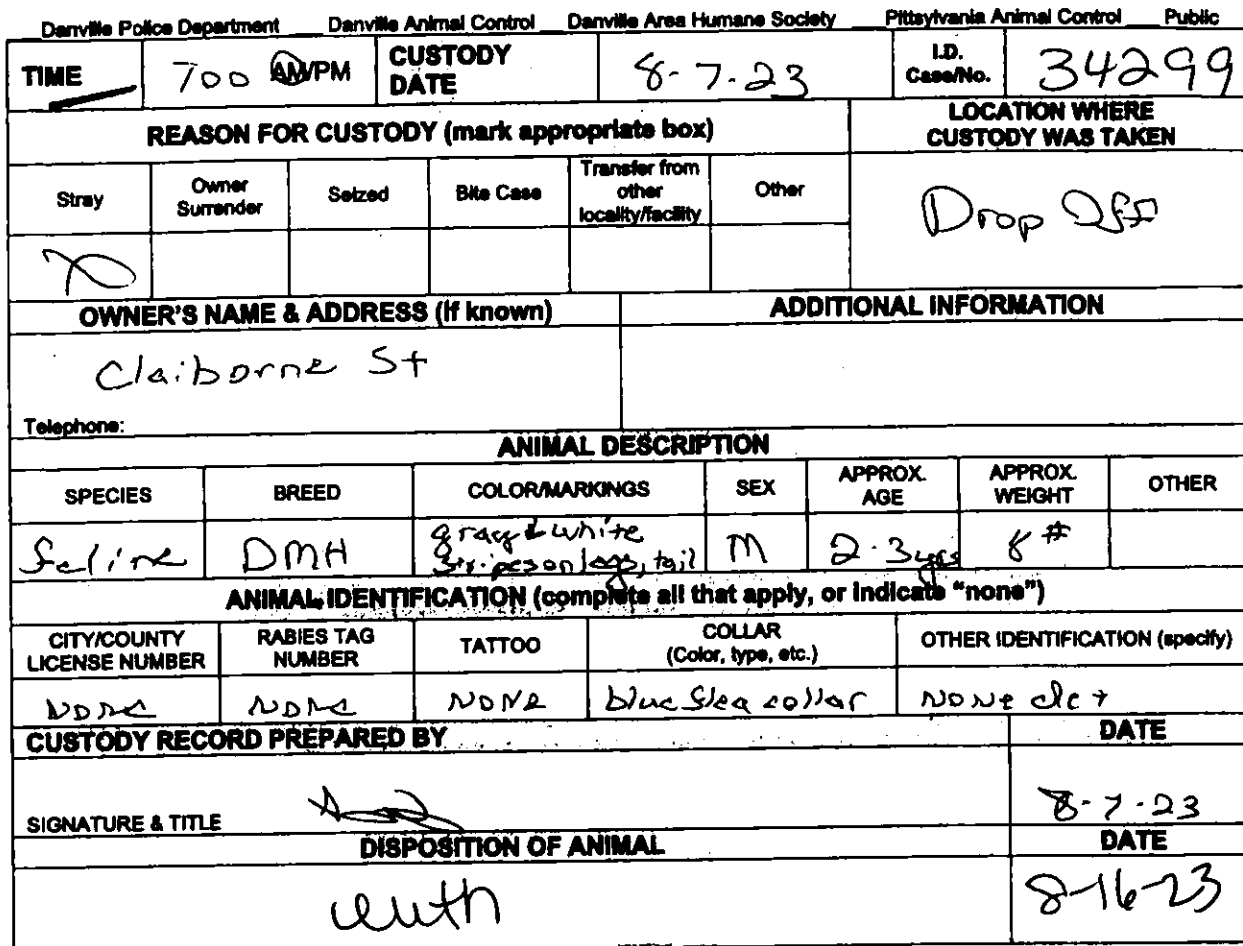 Danville Police Department Danville Animal Control Danville Area Humane Society Pittsylvania Animal Control Public
TIME 700 AM/PM CUSTODY DATE 8-7-23 I.D. Case/No. 34299
REASON FOR CUSTODY (mark appropriate box) LOCATION WHERE CUSTODY WAS TAKEN
Stray Owner Surrender Seized Bite Case Transfer from other locality/facility Other
Drop Off
OWNER'S NAME & ADDRESS (if known) ADDITIONAL INFORMATION
Claiborne St
Telephone:
ANIMAL DESCRIPTION
SPECIES BREED COLOR/MARKINGS SEX APPROX. AGE APPROX. WEIGHT OTHER
feline DMH gray & white stripes on legs, tail M 2-3yrs 8#
ANIMAL IDENTIFICATION (complete all that apply, or indicate "none")
CITY/COUNTY LICENSE NUMBER RABIES TAG NUMBER TATTOO COLLAR (Color, type, etc.) OTHER IDENTIFICATION (specify)
None None None blue flea collar None
CUSTODY RECORD PREPARED BY DATE
SIGNATURE & TITLE 8-7-23
DISPOSITION OF ANIMAL DATE
euth 8-16-23